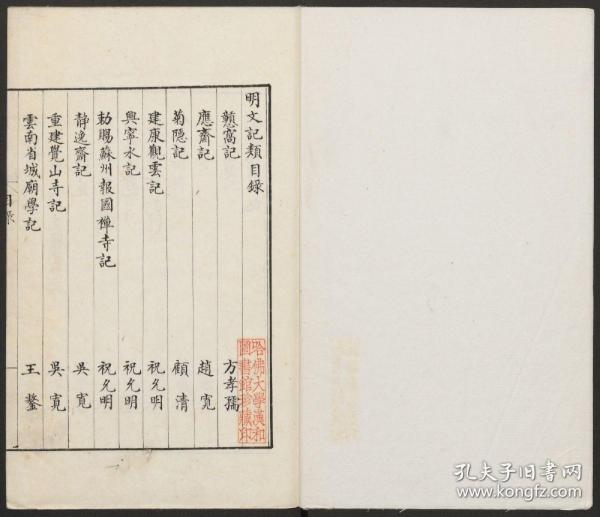 明文記類目錄
憇窩記 方孝孺
應齋記 趙寬
菊隐記 顧清
建康觀雲記 祝允明
興寧水記 祝允明
勅賜蘇州報國禅寺記 祝允明
静逸齋記 吳寬
重建覺山寺記 吳寬
雲南省城廟學記 王鏊
目錄
一
哈佛大學漢和圖書館珍藏印
孔夫子旧书网
www.kongfz.com